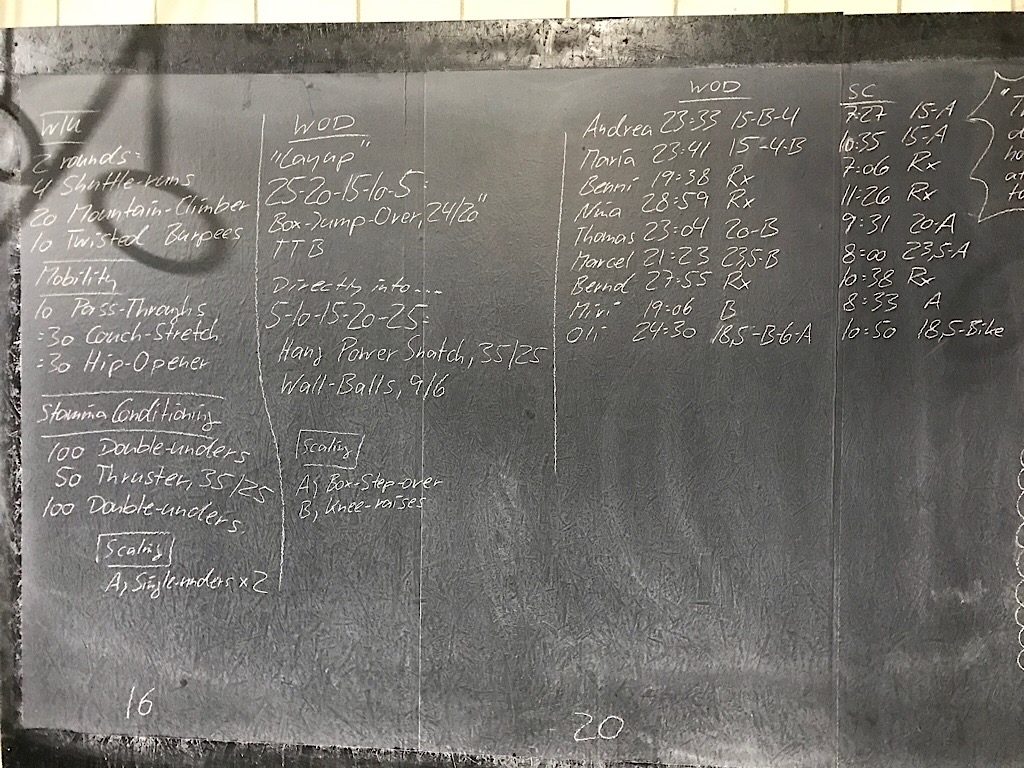 W/U
2 rounds:
4 Shuttle-runs
20 Mountain-Climber
10 Twisted Burpees
Mobility
10 Pass-Throughs
:30 Couch-Stretch
:30 Hip-Opener
Stamina Conditioning
100 Double-unders
50 Thruster, 35/25
100 Double-unders,
Scaling
A) Single-unders x 2
16
WOD
"Layup"
25-20-15-10-5:
Box-Jump-Over, 24/20"
TTB
Directly into...
5-10-15-20-25:
Hang Power Snatch, 35/25
Wall-Balls, 9/6
Scaling
A) Box-Step-over
B) Knee-raises
20
WOD SC
Andrea 23:33 15-B-4 7:27 15-A
Maria 23:41 15-4-B 10:35 15-A
Benni 19:38 Rx 7:06 Rx
Nina 28:59 Rx 11:26 Rx
Thomas 23:04 20-B 9:31 20-A
Marcel 21:23 23,5-B 8:00 23,5-A
Bernd 27:55 Rx 10:38 Rx
Miri 19:06 B 8:33 A
Oli 24:30 18,5-B-6-A 10:50 18,5-Bike